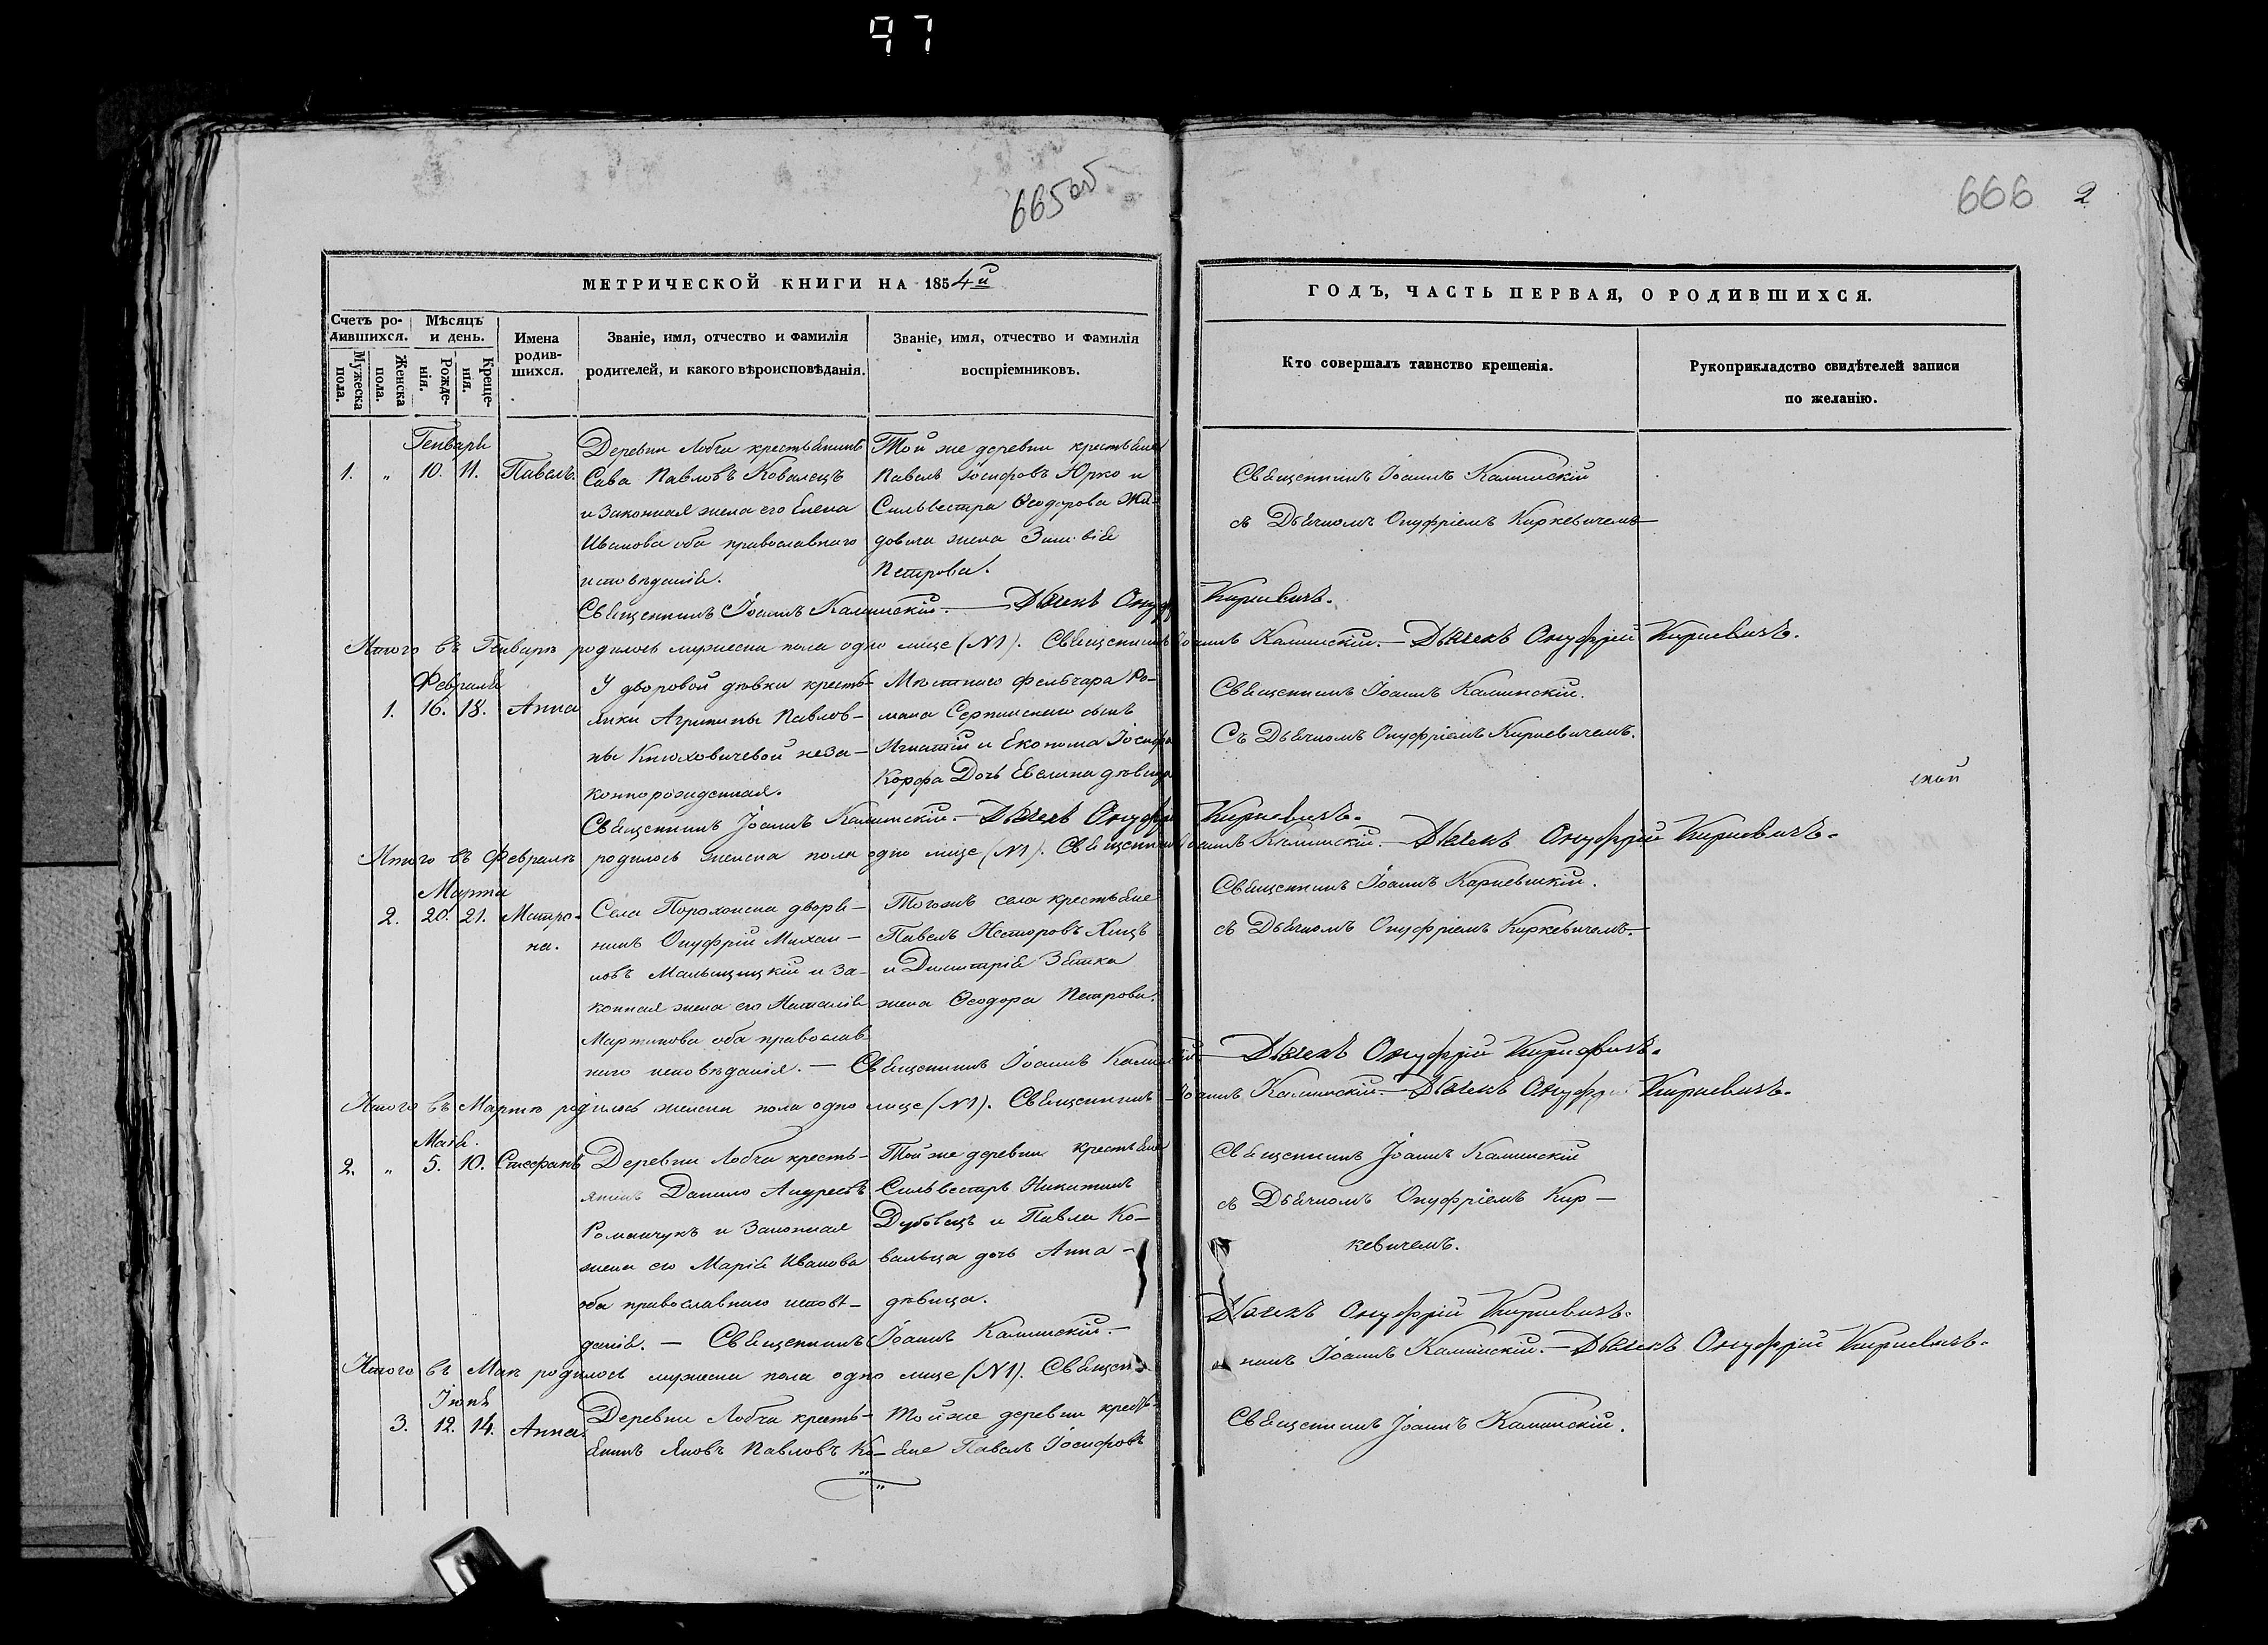 97
665об
666 2
МЕТРИЧЕСКОЙ КНИГИ НА 1854й
Счетъ ро-
дившихся.
Мужеска
пола.
Женска
пола.
Мѣсяцъ
и день.
Рожде-
нія.
Креще-
нія.
Имена
родив-
шихся.
Званіе, имя, отчество и фамилія
родителей, и какого вѣроисповѣданія.
Званіе, имя, отчество и фамилія
воспріемниковъ.
ГОДЪ, ЧАСТЬ ПЕРВАЯ, О РОДИВШИХСЯ.
Кто совершалъ таинство крещенія.
Рукоприкладство свидѣтелей записи
по желанію.
Генваря
1. „ 10. 11. Павелъ.
Деревни Лобчи крестьянинъ
Сава Павловъ Ковалецъ
и законная жена его Елена
Иванова оба православнаго
исповѣданія.
Той же деревни крестьяне
Павелъ Іосифовъ Юрко и
Сильвестра Ѳеодорова Жи-
довича жена Зиновія
Петрова.
Священникъ Іоаннъ Калинскій
съ Дьячкомъ Онуфріемъ Киркевичемъ
Священникъ Іоаннъ Калинскій. — Дьячекъ Онуфрій Киркевичъ.
Итого въ Генварѣ родилось мужеска пола одно лице (№1). Священникъ Іоаннъ Калинскій. — Дьячекъ Онуфрій Киркевичъ.
Февраля
1. 16. 18. Анна
У дворовой дѣвки кресть-
янки Агрипины Павлов-
ны Кнюховичевой неза-
коннорожденная.
Мѣстнаго фельчара Ро-
мана сынъ
Игнатій и Економа Іосифа
Корфа Дочь Евелина дѣвица
Священникъ Іоаннъ Калинскій.
Съ Дьячкомъ Онуфріемъ Киркевичемъ.
Священникъ Іоаннъ Калинскій. — Дьячекъ Онуфрій Киркевичъ.
Итого въ Февралѣ родилось женска пола одно лице (№1). Священникъ Іоаннъ Калинскій. — Дьячекъ Онуфрій Киркевичъ.
Марта
2. 20. 21. Матро-
на.
Села Порохонска дворя-
нинъ Онуфрій Михаи-
ловъ Малыщицкій и за-
конная жена его Наталія
Мартинова оба православ
наго исповѣданія. —
Тогожъ села крестьяне
Павелъ Несторовъ Хицъ
и Димитрія Збитка
жена Ѳеодора Петрова.
Священникъ Іоаннъ
съ Дьячкомъ Онуфріемъ Киркевичемъ.
Священникъ Іоаннъ Калинскій — Дьячекъ Онуфрій Киркевичъ.
Итого въ Мартѣ родилось женска пола одно лице (№1). Священникъ Іоаннъ Калинскій. — Дьячекъ Онуфрій Киркевичъ.
Маія.
2. „ 5. 10. Стефанъ
Деревни Лобчи кресть-
янинъ Данило Андреевъ
Романчукъ и Законная
жена его Марія Иванова
оба православнаго исповѣ-
данія. —
Той же деревни крестьяне
Сильвестръ Никитинъ
Дубовецъ и Павла Ко-
вальца дочь Анна -
дѣвица.
Священникъ Іоаннъ Калинскій
съ Дьячкомъ Онуфріемъ Кир-
кевичемъ.
Священникъ Іоаннъ Калинскій. — Дьячекъ Онуфрій Киркевичъ.
Итого въ Маѣ родилось мужеска пола одно лице (№1). Священ- никъ Іоаннъ Калинскій. — Дьячекъ Онуфрій Киркевичъ.
Іюня
3. 12. 14. Анна.
Деревни Лобчи кресть-
янинъ Яковъ Павловъ Ко-
Той же деревни кресть-
яне Павелъ Іосифовъ
Священникъ Іоаннъ Калинскій.